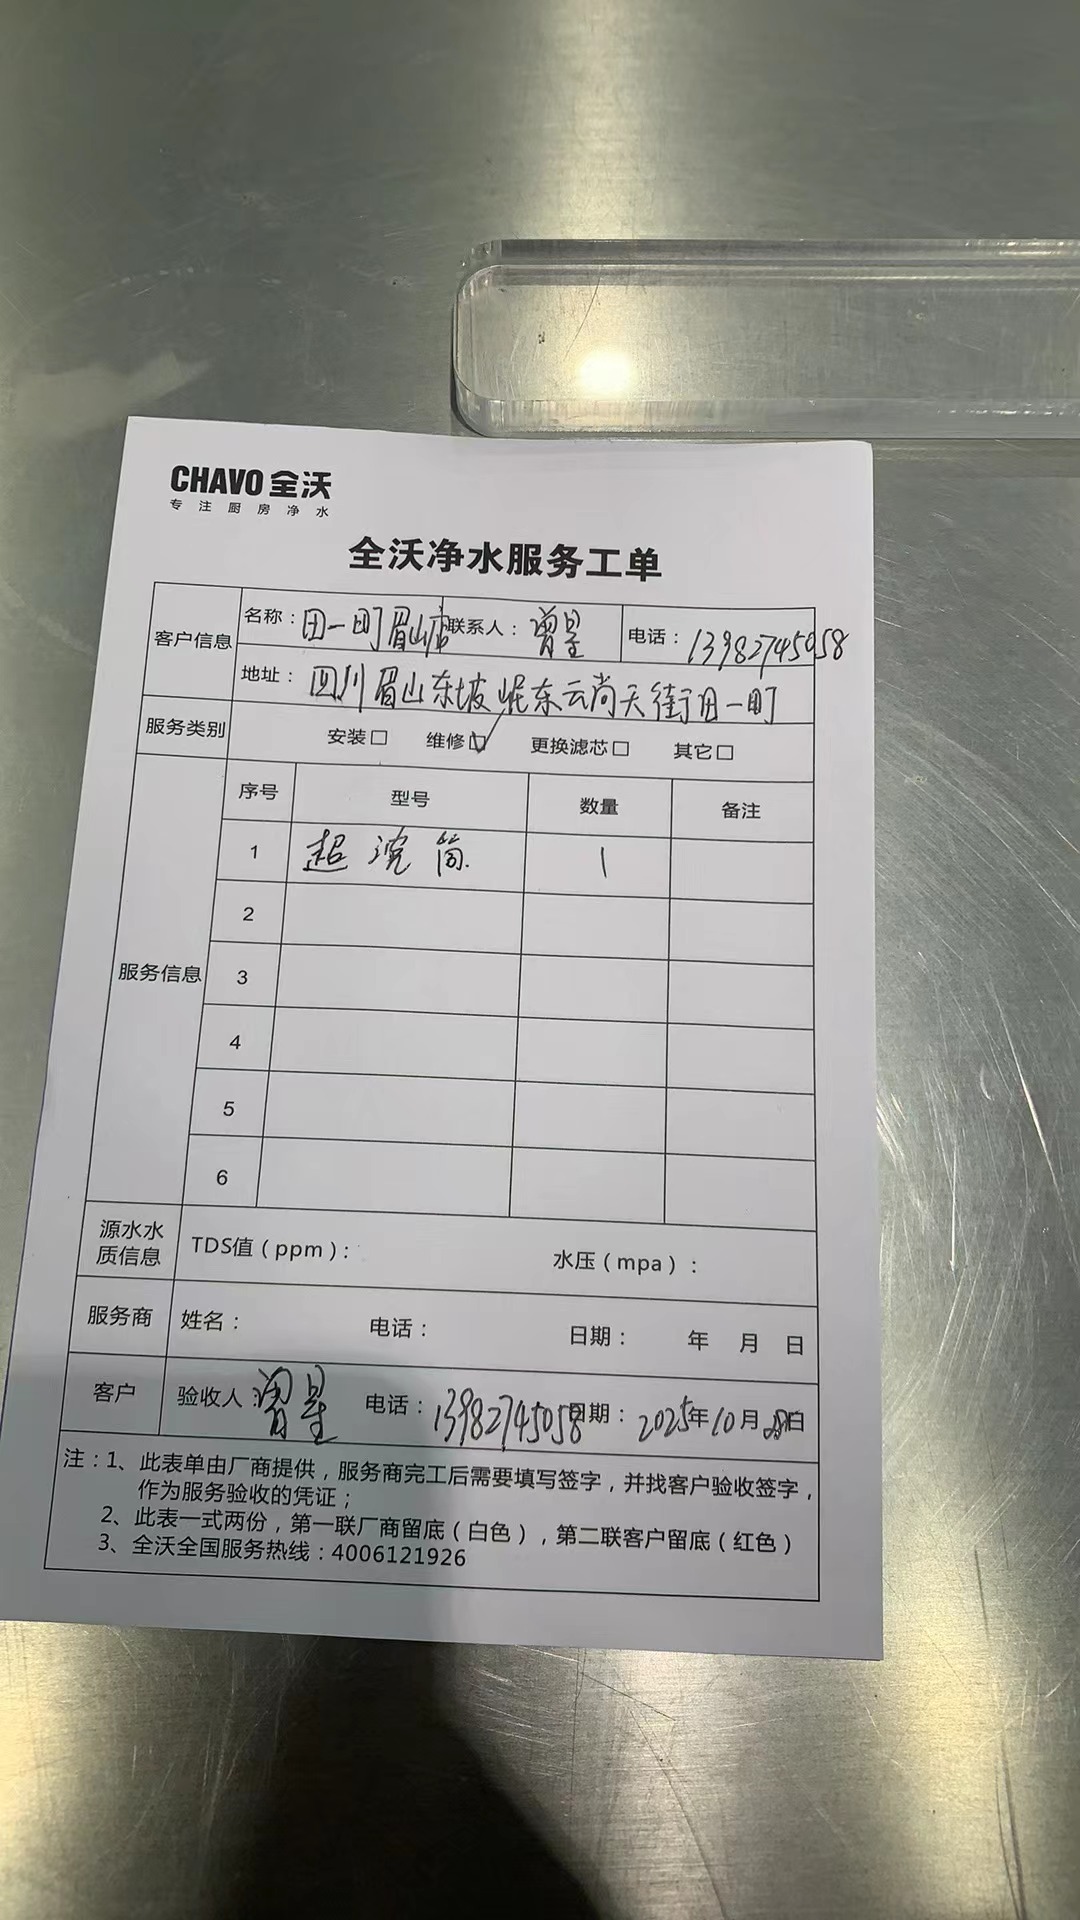 CHAVO 全沃
专注厨房净水
全沃净水服务工单
客户信息 名称：田一町眉山店 联系人：曾星 电话：13982745058
地址：四川眉山东坡岷东云尚天街田一町
服务类别 安装□ 维修☑ 更换滤芯□ 其它□
服务信息 序号 型号 数量 备注
1 超滤筒 1
2
3
4
5
6
源水水质信息 TDS值（ppm）： 水压（mpa）：
服务商 姓名： 电话： 日期： 年 月 日
客户 验收人：曾星 电话：13982745058 日期：2025年10月28日
注：1、此表单由厂商提供，服务商完工后需要填写签字，并找客户验收签字，
作为服务验收的凭证；
2、此表一式两份，第一联厂商留底（白色），第二联客户留底（红色）
3、全沃全国服务热线：4006121926